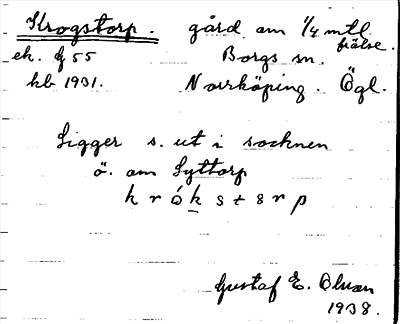 Krogstorp. gård om 1/4 mtl frälse.
ek. bl 55 Borgs sn.
kb 1931. Norrköping. Ögl.
Ligger s. ut i socknen
ö. om Lyttorp
k r ó k s t ə r p
Gustaf E. Olsson
1938.